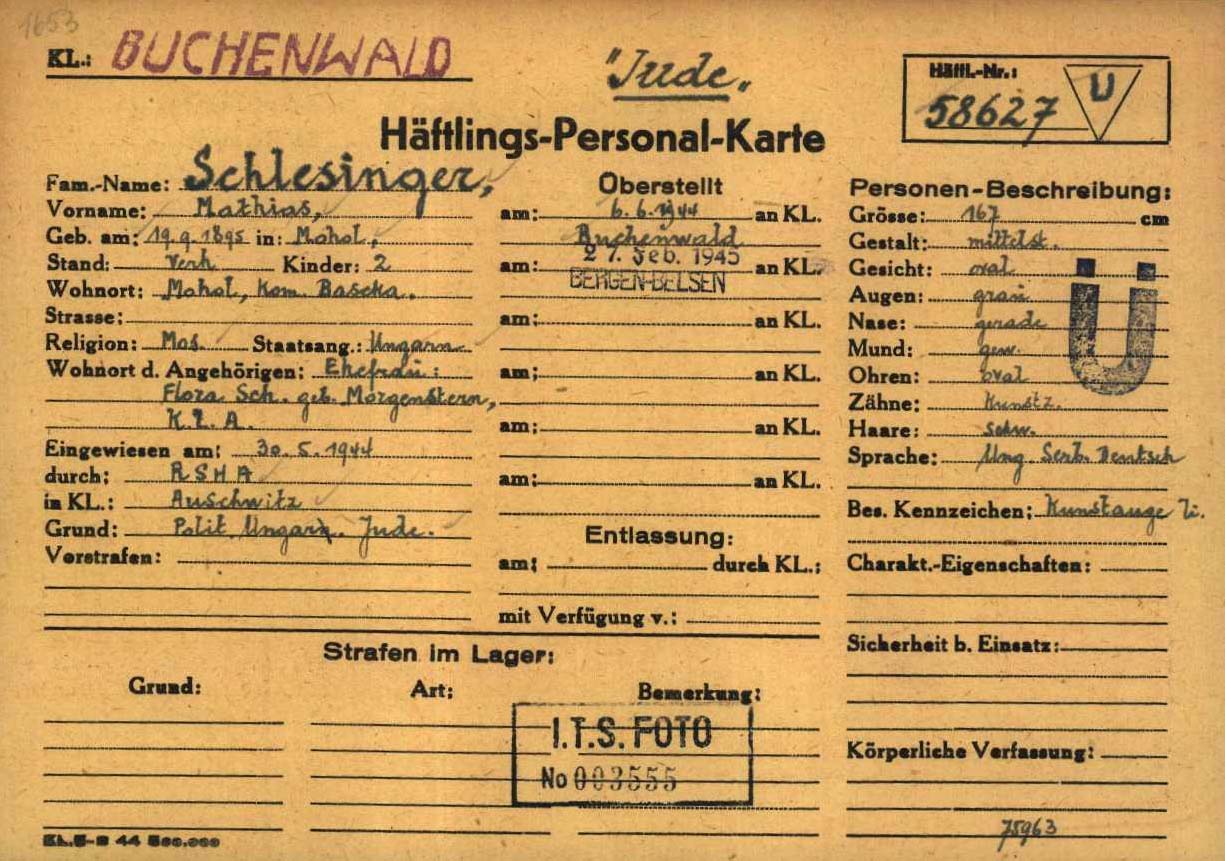 1653
KL.: BUCHENWALD
"Jude"
Häftl.-Nr.:
58627 U
Häftlings-Personal-Karte
Fam.-Name: Schlesinger,
Vorname: Mathias,
Geb. am: 19.9.1895 in: Mohol,
Stand: verh Kinder: 2
Wohnort: Mohol, Kom. Bascka.
Strasse:
Religion: Mos. Staatsang.: Ungarn
Wohnort d. Angehörigen: Ehefrau:
Flora Sch. geb. Morgenstern,
K.L.A.
Eingewiesen am: 30.5.1944
durch: RSHA
in KL.: Auschwitz
Grund: Polit. Ungarn. Jude.
Vorstrafen:
Überstellt
am: 6.6.1944 an KL.
Buchenwald
27. Feb. 1945
am: an KL.
BERGEN-BELSEN
am: an KL.
am: an KL.
am: an KL.
am: an KL.
Entlassung:
am: durch KL.:
mit Verfügung v.:
Personen-Beschreibung:
Grösse: 167 cm
Gestalt: mittelst.
Gesicht: oval
Augen: grau
Nase: gerade
Mund: gew.
Ohren: oval
Zähne: Kunstz.
Haare: schw.
Sprache: Ung. Serb. Deutsch
Ü
Bes. Kennzeichen: Kunstauge li.
Charakt.-Eigenschaften:
Sicherheit b. Einsatz:
Körperliche Verfassung:
75963
Strafen im Lager:
Grund: Art: Bemerkung:
I.T.S. FOTO
No 003555
44 500.000